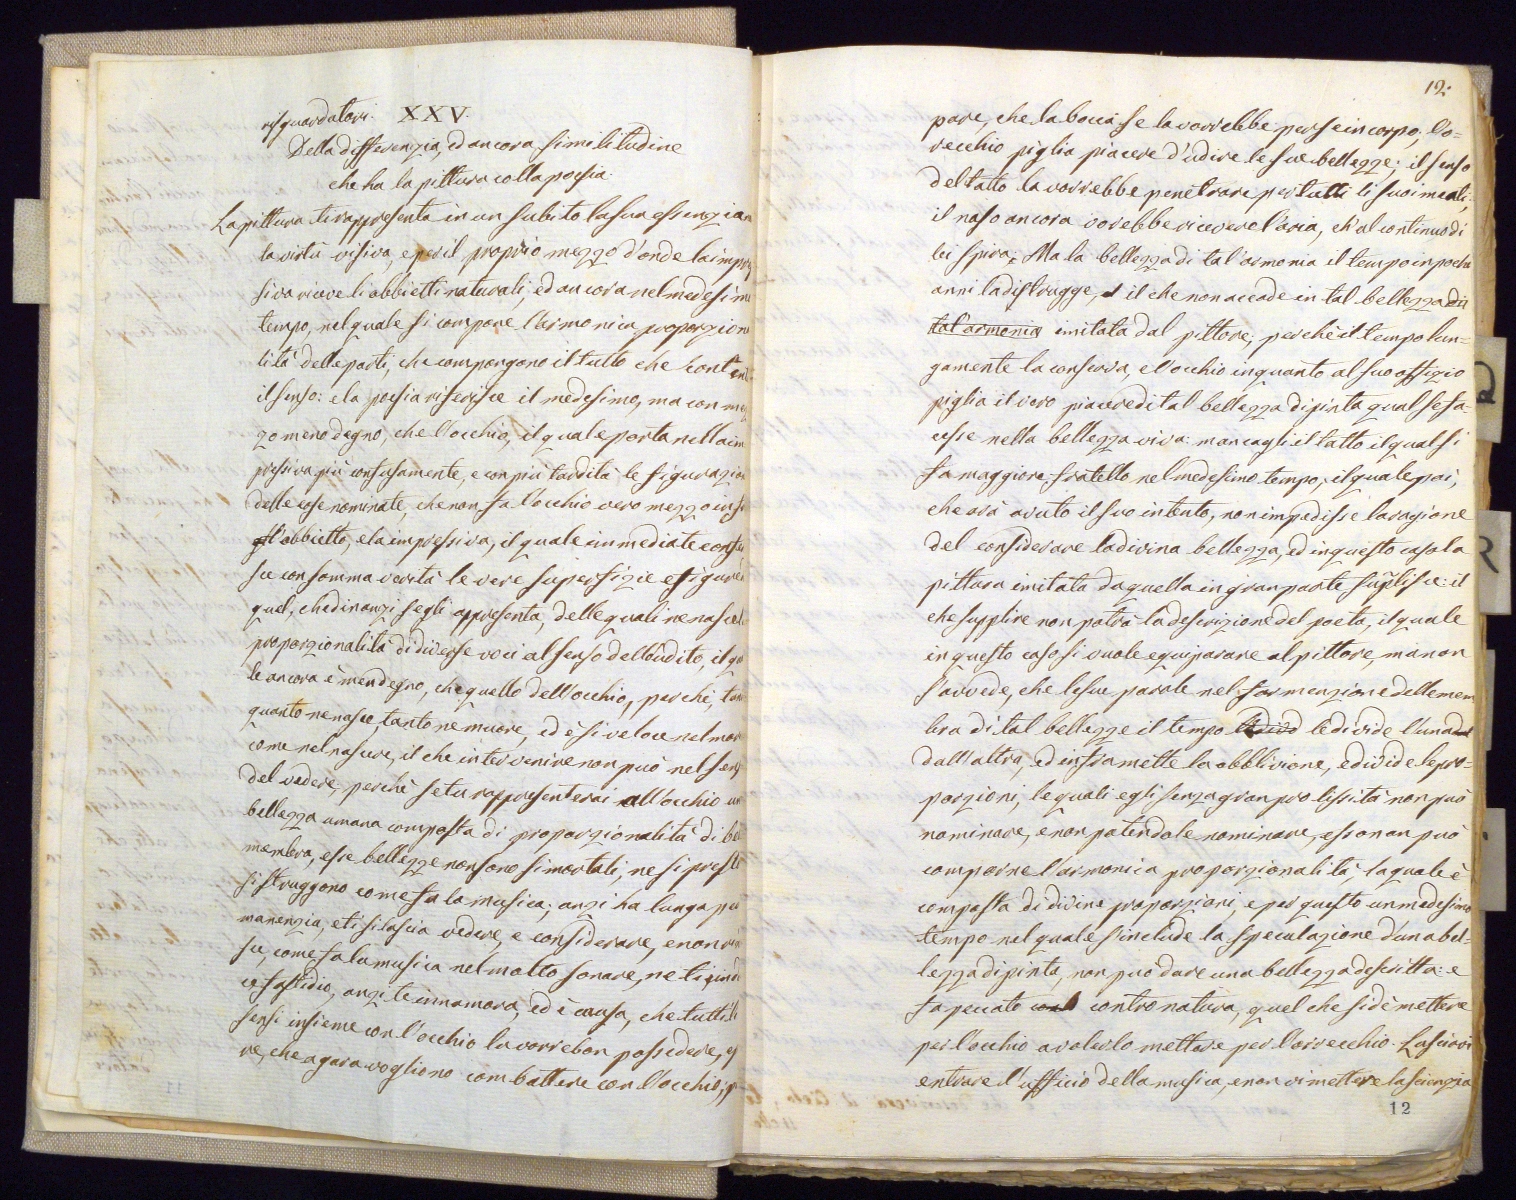 risguardatori. XXV.
Della differenzia, ed ancora similitudine
che ha la pittura colla poesia.
La pittura ti rappresenta in un subito la sua essenzia n
la virtù visiva, e per il proprio mezzo d'onde la impre
siva riceve li obbietti naturali; ed ancora nel medesimo
tempo, nel quale si compone l'armonica proporzion
lità delle parti, che compongono il tutto che content
il senso: e la poesia riferisce il medesimo, ma con me
zo meno degno, che l'occhio, il quale porta nella im
pressiva più confusamente, e con più tardità le figurazion
delle cose nominate, che non fa l'occhio vero mezzo infr
l'obbietto, e la impressiva, il quale immediate confer
sce con somma verità le vere superfizie e figure
quel, che dinanzi se gli appresenta, delle quali ne nasce l
proporzionalità di diverse voci al senso dell'audito, il qu
le ancora è men degno, che quello dell'occhio, perchè, tan
quanto ne nasce, tanto ne muore, ed è sì veloce nel mor
come nel nascere, il che intervenire non può nel sens
del vedere; perchè se tu rappresenterai all'occhio un
bellezza umana composta di proporzionalità di bel
membra, esse bellezze non sono sì mortali, ne sì prest
si struggono come fa la musica; anzi ha lunga per
manenzia, e ti si lascia vedere, e considerare, e non rin
sce, come fa la musica nel molto sonare, ne ti indu
ce fastidio, anzi te innamora, ed è causa, che tutti li
sensi insieme con l'occhio la vorrebon possedere, e p
re, che a gara vogliono combattere con l'occhio; p
12.
pare, che la bocca se la vorrebbe per se in corpo; l'o=
recchio piglia piacere d'udire le sue bellezze; il senso
del tatto la vorrebbe penetrare per tutti li suoi meati;
il naso ancora vorebbe ricevere l'aria, ch'al continuo di
lei spira. Ma la bellezza di tal'armonia il tempo in pochi
anni la distrugge, il che non accade in tal bellezza di
tal'armonia imitata dal pittore; perchè il tempo lun=
gamente la conserva, e l'occhio inquanto al suo offizio
piglia il vero piacere di tal bellezza dipinta qual se fa=
cesse nella bellezza viva: mancagli il tatto il qual si
fa maggiore fratello nel medesimo tempo, il quale poi,
che arà avuto il suo intento, non impedisse la ragione
del considerare la divina bellezza, ed in questo caso la
pittura imitata da quella in gran parte supplisce: il
che supplire non potrà la descrizione del poeta, il quale
in questo caso si vuole equiparare al pittore, ma non
s'avvede, che le sue parole nel far menzione delle mem
bra di tal bellezze il tempo le divide l'una
dall'altra, ed inframette la obblivione, e divide le pro=
porzioni, le quali egli senza gran prolissità non può
nominare, e non potendole nominare, esso non può
comporne l'armonica proporzionalità, la quale è
composta di divine proporzioni, e per questo un medesimo
tempo nel quale s'include la speculazione d'una bel=
lezza dipinta, non può dare una bellezza descritta: e
fa peccato contro natura, quel che si dè mettere
per l'occhio a volerlo mettere per l'orrecchio. Lasciavi
entrare l'ufficio della musica, e non vi mettere la scienzia
12